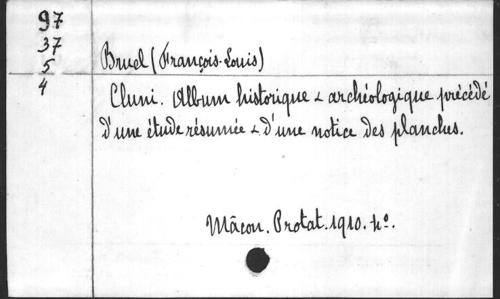 97
37
5
4
Bruel (François-Louis)
Cluni. Album historique & archéologique précédé
d'une étude résumée & d'une notice des planches.
Mâcon. Protat. 1910. 4º.